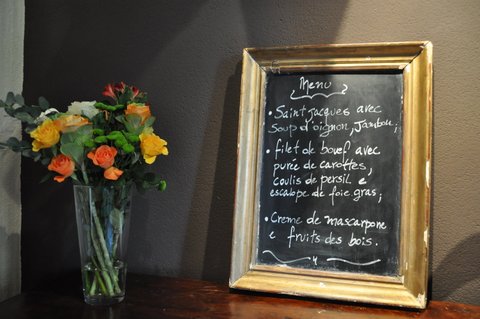 Menu
• Saint jacques avec
soup d'oignon, Jambon;
• filet de boeuf avec
purée de carottes,
coulis de persil e
escalope de foie gras;
• Creme de mascarpone
e fruits des bois.